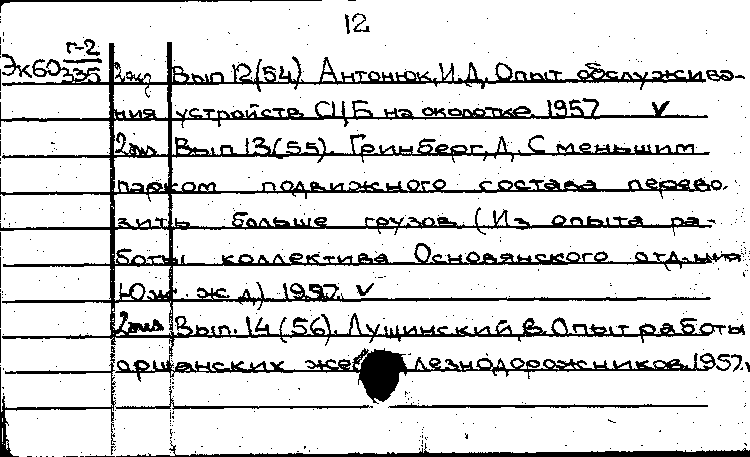 12
г-2
Эк60 335 2экз Вып 12(54) Антонюк, И.Д. Опыт обслужива-
ния устройств СЦБ на околотке 1957 V
2экз Вып 13(55). Гринберг, Д. С меньшим
парком подвижного состава перево-
зить больше грузов (Из опыта ра-
боты коллектива Основянского отд-ния
Юж. ж.д.) 1957. V
2экз Вып. 14(56). Лущинский, В. Опыт работы
оршанских железнодорожников. 1957.